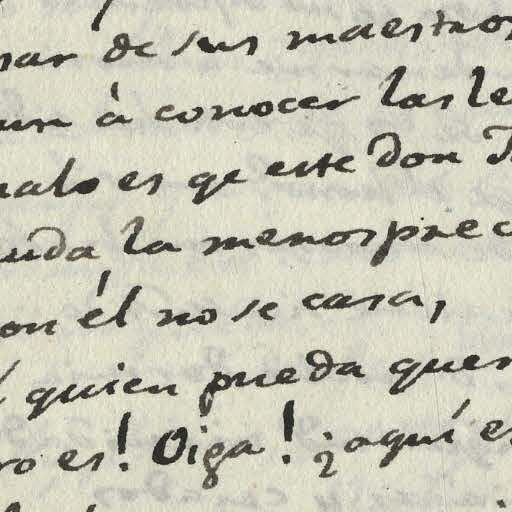 sar de sus maestros
un à conocer las le
malo es qe este don
uda la menosprec
on él no se casa,
quien pueda quer
ro es! Oiga! ¿aquí es